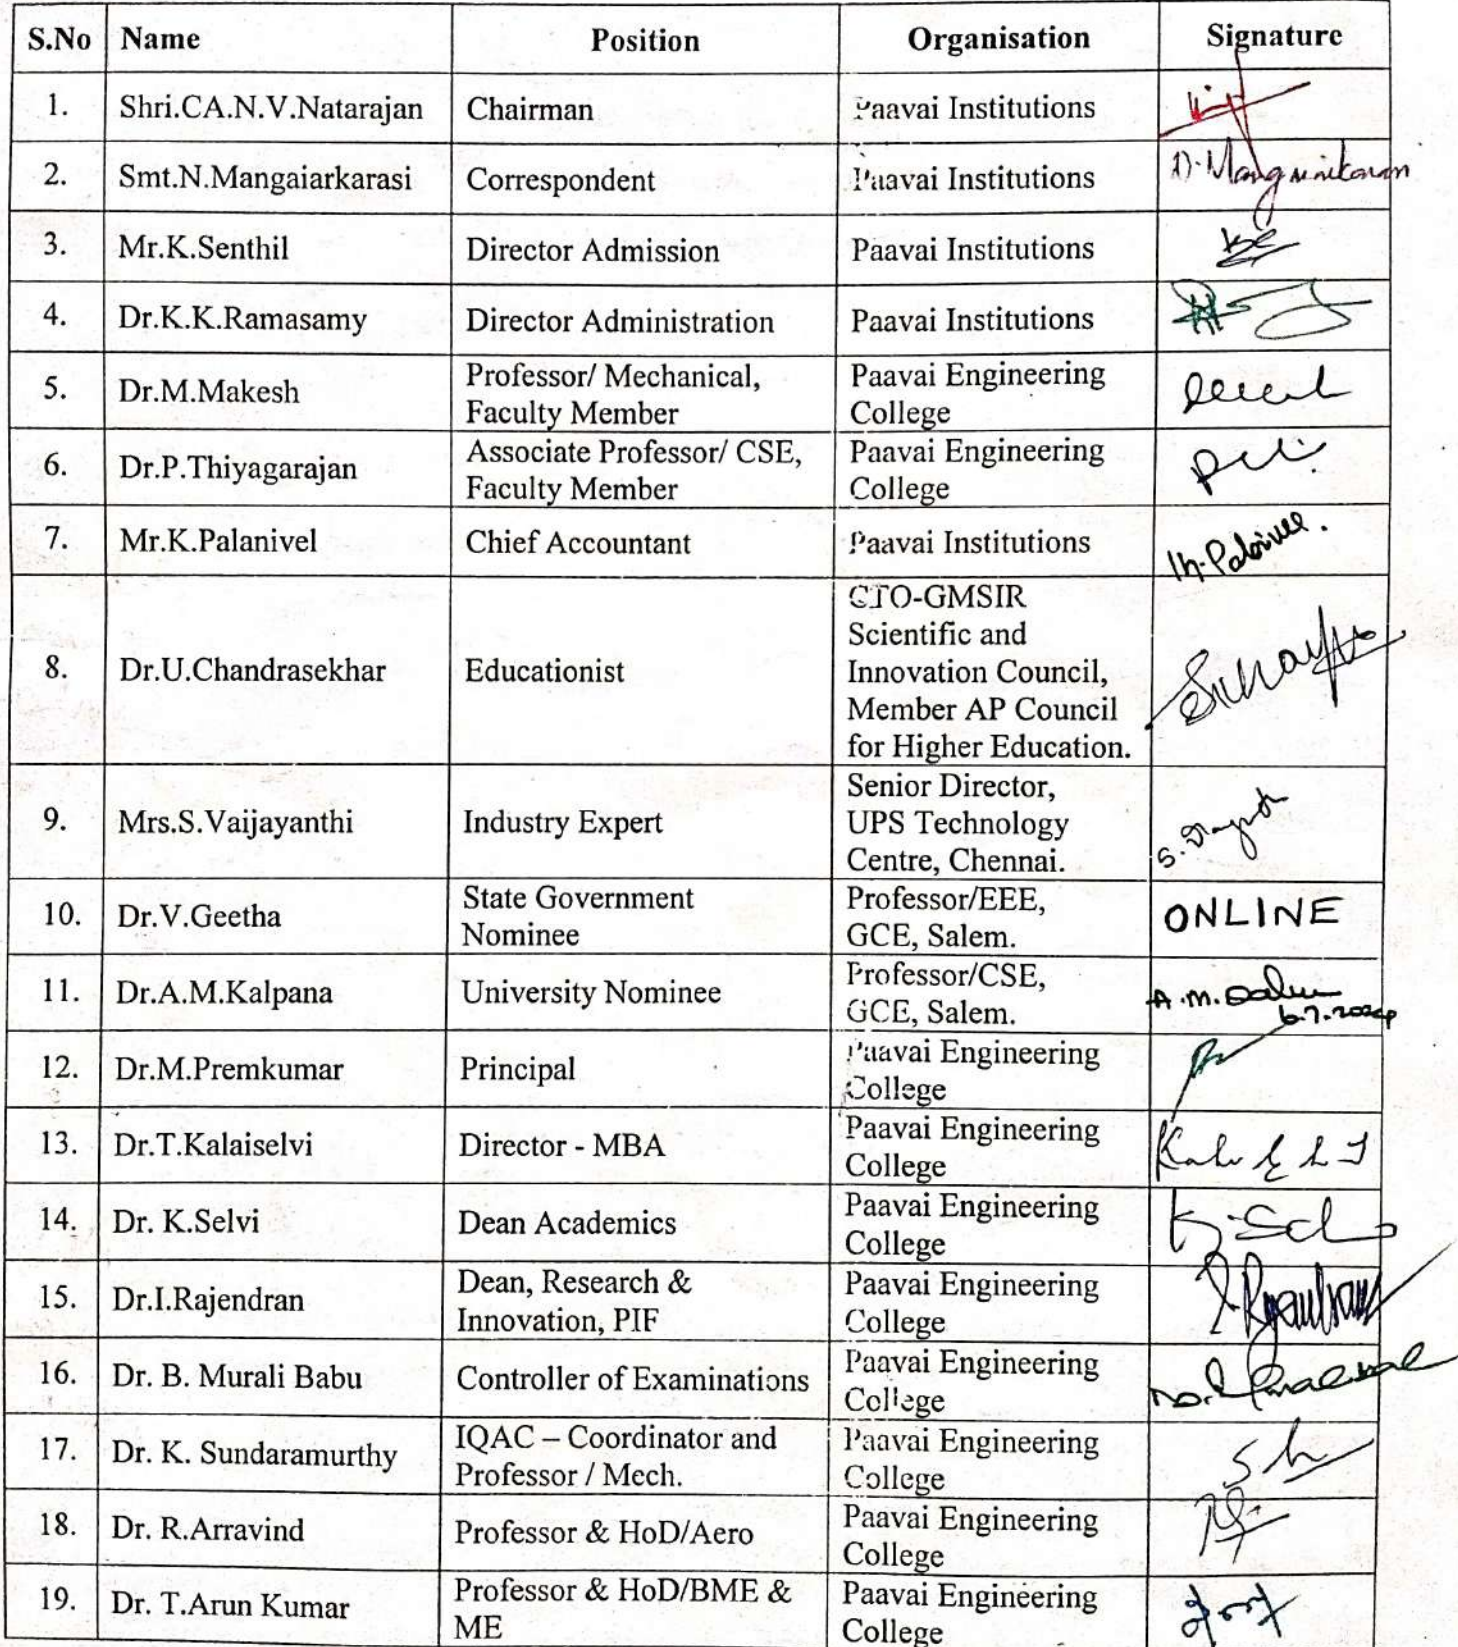 S.No Name Position Organisation Signature
1. Shri.CA.N.V.Natarajan Chairman Paavai Institutions
2. Smt.N.Mangaiarkarasi Correspondent Paavai Institutions
3. Mr.K.Senthil Director Admission Paavai Institutions
4. Dr.K.K.Ramasamy Director Administration Paavai Institutions
5. Dr.M.Makesh Professor/ Mechanical, Paavai Engineering
Faculty Member College
6. Dr.P.Thiyagarajan Associate Professor/ CSE, Paavai Engineering
Faculty Member College
7. Mr.K.Palanivel Chief Accountant Paavai Institutions
CTO-GMSIR
Scientific and
8. Dr.U.Chandrasekhar Educationist Innovation Council,
Member AP Council
for Higher Education.
Senior Director,
9. Mrs.S.Vaijayanthi Industry Expert UPS Technology
Centre, Chennai.
10. Dr.V.Geetha State Government Professor/EEE, ONLINE
Nominee GCE, Salem.
11. Dr.A.M.Kalpana University Nominee Professor/CSE, A.M.
GCE, Salem. 6.7.2024
12. Dr.M.Premkumar Principal Paavai Engineering
College
13. Dr.T.Kalaiselvi Director - MBA Paavai Engineering
College
14. Dr. K.Selvi Dean Academics Paavai Engineering
College
15. Dr.I.Rajendran Dean, Research & Paavai Engineering
Innovation, PIF College
16. Dr. B. Murali Babu Controller of Examinations Paavai Engineering
College
17. Dr. K. Sundaramurthy IQAC – Coordinator and Paavai Engineering
Professor / Mech. College
18. Dr. R.Arravind Professor & HoD/Aero Paavai Engineering
College
19. Dr. T.Arun Kumar Professor & HoD/BME & Paavai Engineering
ME College